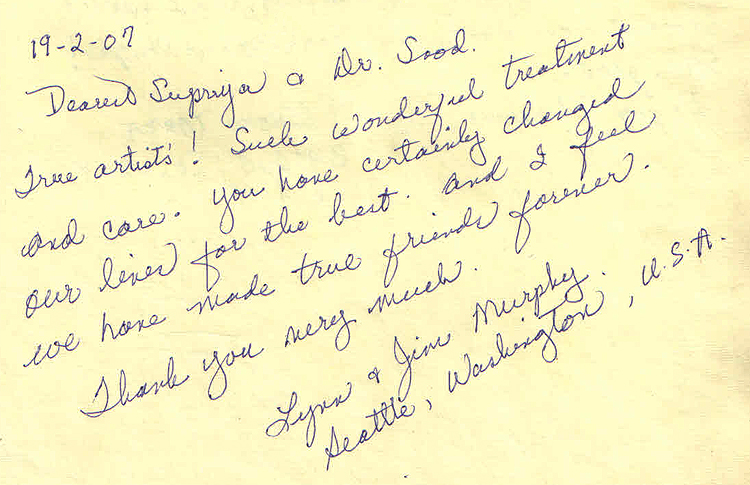 19-2-07
Dearest Supriya & Dr. Sood.
True artists'! Such wonderful treatment
and care. You have certainly changed
our lives for the best. and I feel
we have made true friends forever.
Thank you very much.
Lynn & Jim Murphy.
Seattle, Washington, U.S.A.